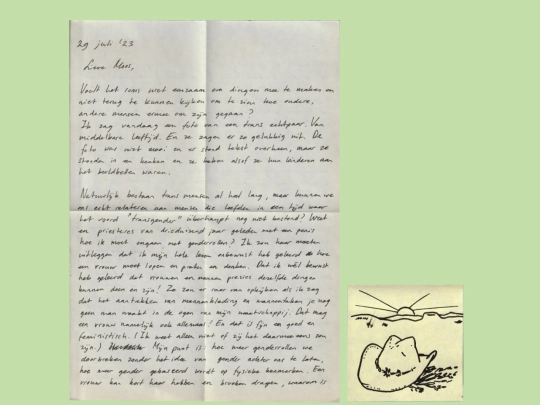 29 juli '23
Lieve Mees,
Voelt het soms niet eenzaam om dingen mee te maken en
niet terug te kunnen kijken om te zien hoe oudere,
andere mensen ermee om zijn gegaan?
Ik zag vandaag een foto van een trans echtpaar. Van
middelbare leeftijd. En ze zagen er zo gelukkig uit. De
foto was niet mooi en er stond tekst overheen, maar ze
stonden in een keuken en ze keken alsof ze hun kinderen aan
het beeldbellen waren.
Natuurlijk bestaan trans mensen al heel lang, maar kunnen we
ons echt relateren aan mensen die leefden in een tijd waar
het woord "transgender" überhaupt nog niet bestond? Weet
een priesteres van drieduizend jaar geleden met een penis
hoe ik moet omgaan met genderrollen? Ik zou haar moeten
uitleggen dat ik mijn hele leven onbewust heb geleerd hoe
een vrouw moet lopen en praten en denken. Dat ik wél bewust
heb geleerd dat vrouwen en mannen precies dezelfde dingen
kunnen doen en zijn! Ze zou er van opkijken als ik zeg
dat het aantrekken van mannenkleding en mannentaken je nog
geen man maakt in de ogen van mijn maatschappij. Dat mag
een vrouw namelijk ook allemaal! En dat is fijn en goed en
feministisch. (Ik weet alleen niet of zij het daarmee eens zou
zijn.) Mijn punt is: hoe meer genderrollen we
doorbreken zonder het idee van gender achter ons te laten,
hoe meer gender gebaseerd wordt op fysieke kenmerken. Een
vrouw kan kort haar hebben en broeken dragen, waarom is